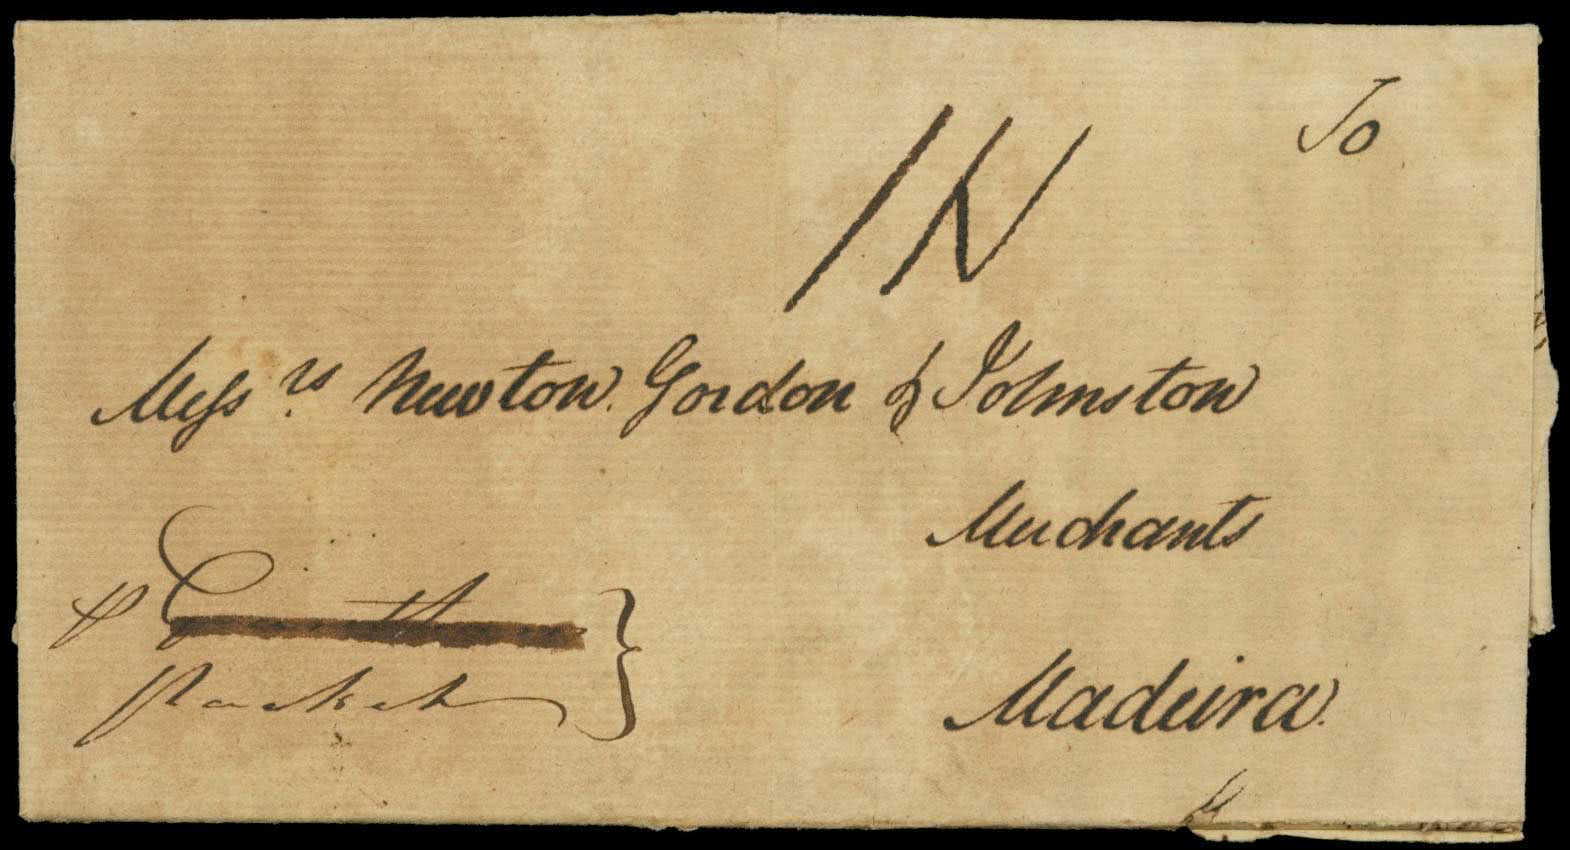 To
IN
Mess.rs Newton. Gordon & Johnston
Merchants
Madeira.
P
packet